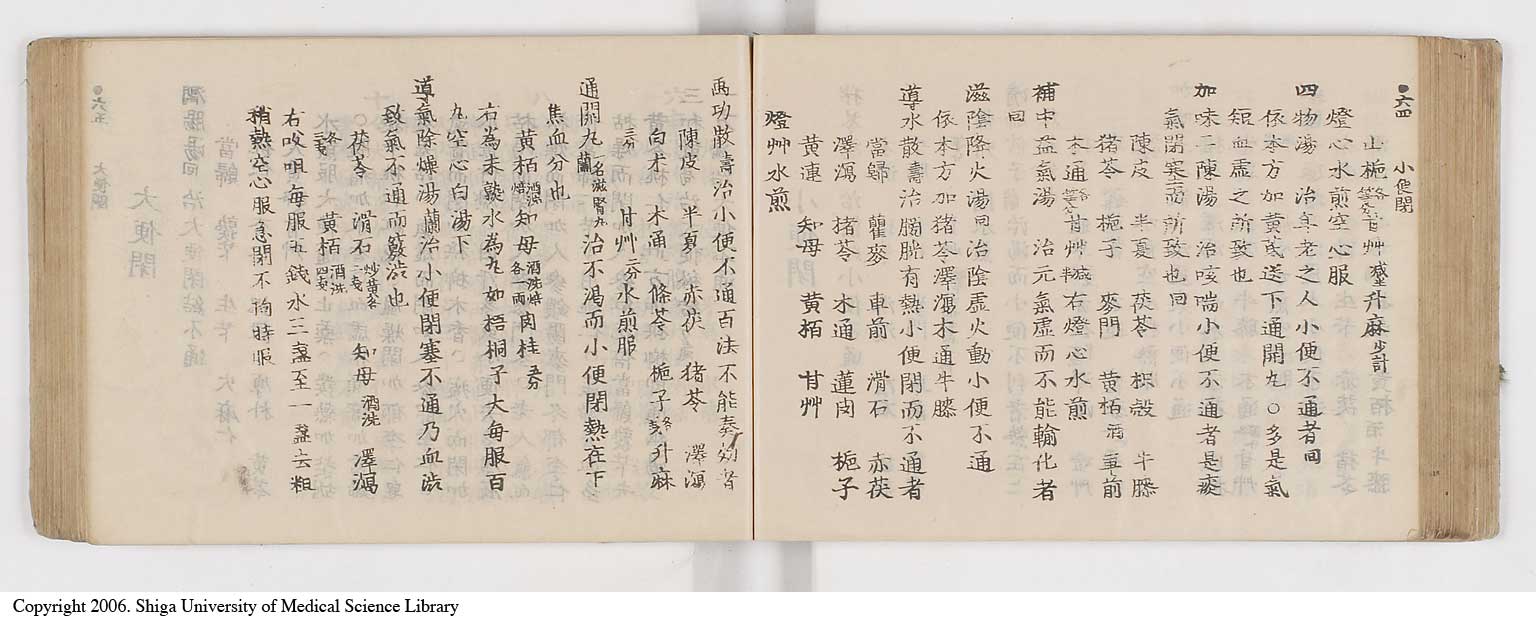 六四
小便閉
山梔 甘艸 升麻少計
燈心水煎空心服
四物湯 治年老之人小便不通者回
依本方加黃芪送下通開丸○多是氣
短血虛之所致也
加味二陳湯 治咳喘小便不通者是痰
氣閉塞而所致也回
陳皮 半夏 茯苓 枳殼 牛膝
猪苓 梔子 麥門 黃栢酒 車前
木通各等分 甘艸減半 右燈心水煎
補中益氣湯 治元氣虛而不能輸化者
回
滋陰降火湯回 治陰虛火動小便不通
依本方加猪苓澤瀉木通牛膝
導水散壽治膀胱有熱小便閉而不通者
當歸 瞿麥 車前 滑石 赤茯
澤瀉 猪苓 木通 蓮肉 梔子
黃連 知母 黃栢 甘艸
燈艸水煎
兩功散壽治小便不通百法不能奏効者
陳皮 半夏 赤茯 猪苓 澤瀉
白朮 木通 條苓 梔子 升麻
三分 甘艸二分水煎服
通關丸一名滋腎丸蘭 治不渴而小便閉熱在下
焦血分也
黃栢酒洗焙知母酒洗焙各一兩肉桂五分
右為末熟水為丸如梧桐子大每服百
丸空心白湯下
導氣除燥湯蘭治小便閉塞不通乃血澁
致氣不通而竅澁也
茯苓 滑石炒黃各二戔 知母酒洗 澤瀉
各三戔 黃栢酒洗四戔
右㕮咀每服五錢水三盞至一盞去粗
稍熱空心服急閉不拘時服
六五
大便閉